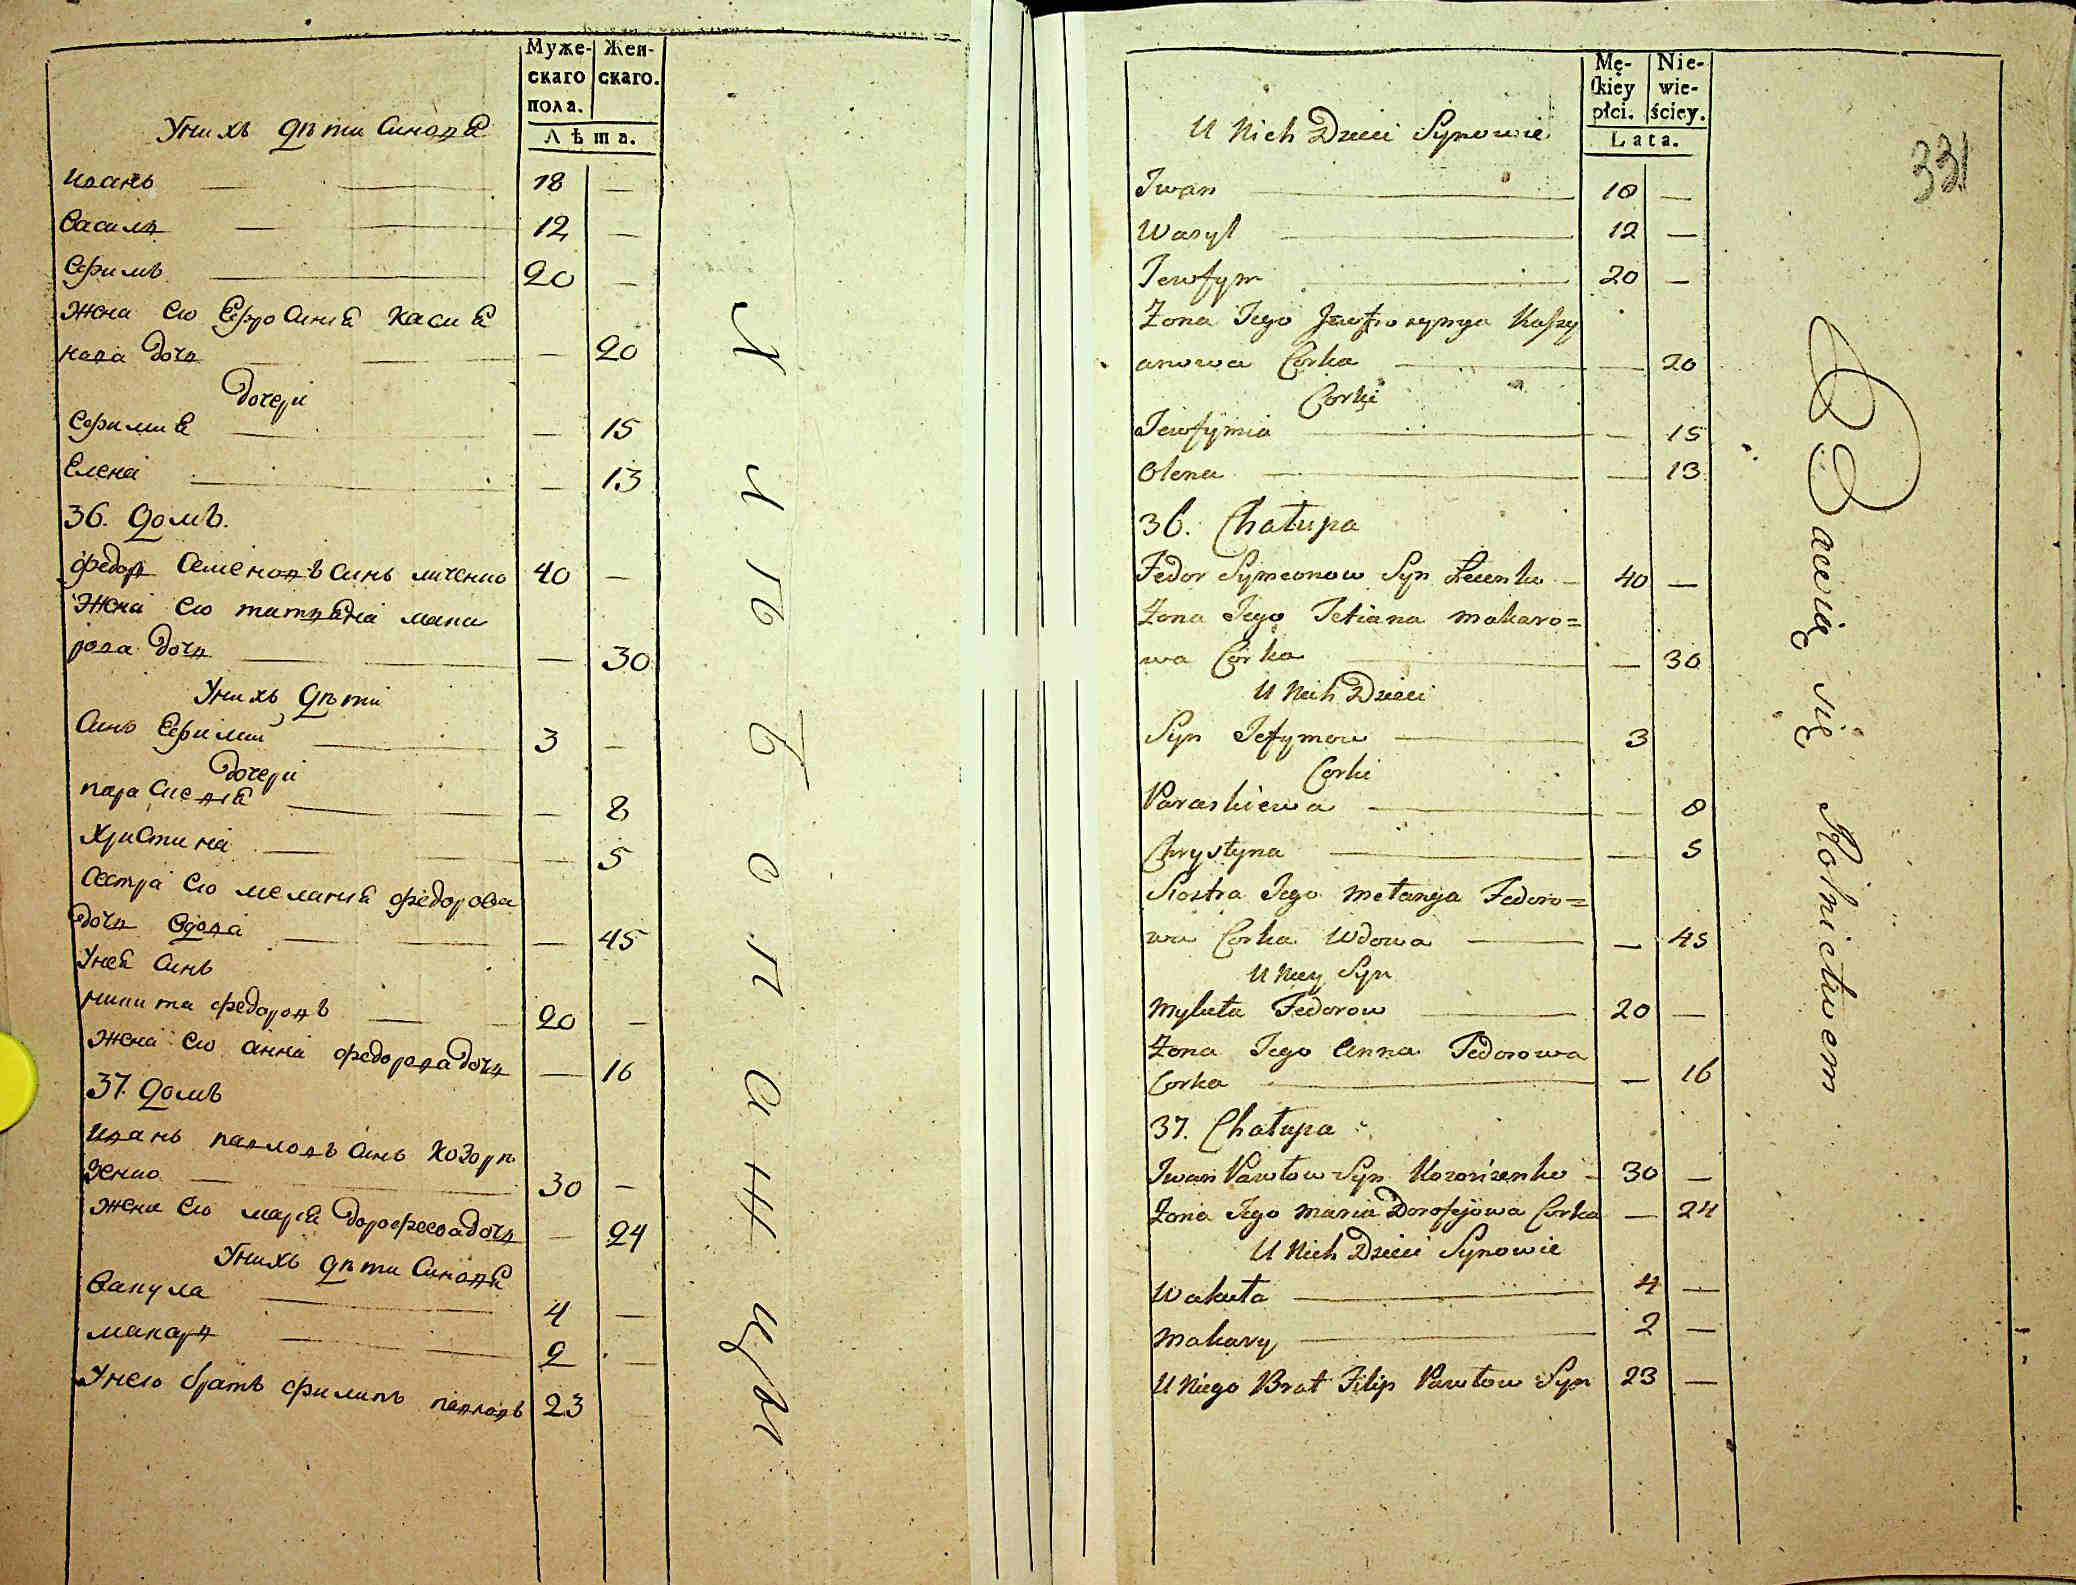 Муже-
скаго
пола.
Жен-
скаго.
Лѣта.
Унихъ дѣти Синовѣ
Иванъ 18 —
Василь 12 —
Ефимъ 20 —
Жена Его Ефросинїя Касия
нова дочь — 20
Дочери
Ефимия — 15
Елена — 13
36. Домъ.
Федоръ Семеновъ Синъ 40 —
Жена Его татияна мака
рова дочь — 30
Унихъ дѣти
Синъ Ефимий 3 —
Дочери
параскевїя — 8
Христина — 5
Сестра Его меланїя федорова
дочь вдова — 45
Унея Синъ
никита федоровъ 20 —
Жена Его анна федорова дочь — 16
37. Домъ
Иванъ павловъ Синъ Козорѣ
зенко 30 —
жена Его марїя дорофеева дочь — 24
Унихъ дѣти Синовѣ
Вакула 4 —
макаръ 2 —
Унего братъ филипъ павловъ 23
Хлѣбопашци
Mę-
skiey
płci.
Nie-
wie-
ściey.
Lata.
331
U Nich Dzieci Synowie
Iwan 18 —
Wasyl 12 —
Jewfym 20 —
Żona Jego Jewfrozynya Kassy
anowa Corka — 20
Corki
Jewfymia — 15
Olena — 13
36. Chałupa
Fedor Symeonow Syn — 40 —
Żona Jego Tetiana Makaro=
wa Corka — 30
U Nich Dzieci
Syn Jefymow 3
Corki
Paraskiewa — 8
Chrystyna — 5
Siostra Jego Mełanya Fedoro=
wa Corka Wdowa — 45
U Niey Syn
Mykita Fedorow 20 —
Żona Jego Anna Fedorowa
Corka — 16
37. Chałupa
Iwan Pawłow Syn Kozorizenko — 30 —
Żona Jego Maria Dorofejowa Corka — 24
U Nich Dzieci Synowie
Wakuła 4 —
Makary 2 —
U Niego Brat Filip Pawłow Syn 23 —
Bawią się Rolnictwem